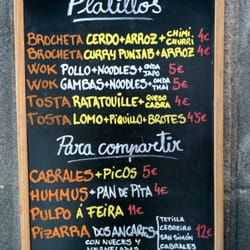 Platillos
BROCHETA CERDO+ARROZ+CHIMI CHURRI 4€
BROCHETA CURRY PUNJAB+ARROZ 4€
WOK POLLO+NOODLES+ONDA JAPO 5€
WOK GAMBAS+NOODLES+ONDA THAI 5€
TOSTA RATATOUILLE+QUESO CABRA 4€
TOSTA LOMO+PIQUILLO+BROTES 4'5€
Para compartir
CABRALES+PICOS 5€
HUMMUS+PAN DE PITA 4€
PULPO Á FEIRA 11€
PIZARRA DOS ANCARES TETILLA CEBREIRO SAN SIMÓN CABRALES 12€
CON NUECES Y